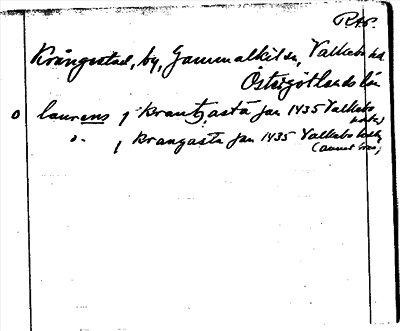 Rep.
Krångestad, by, Gammalkils sn, Valkebo hd
Östergötlands län
o laurens j krantzasta jan 1435 Valkebo
j krangasta jan 1435 Valkebo
(annat ex.)